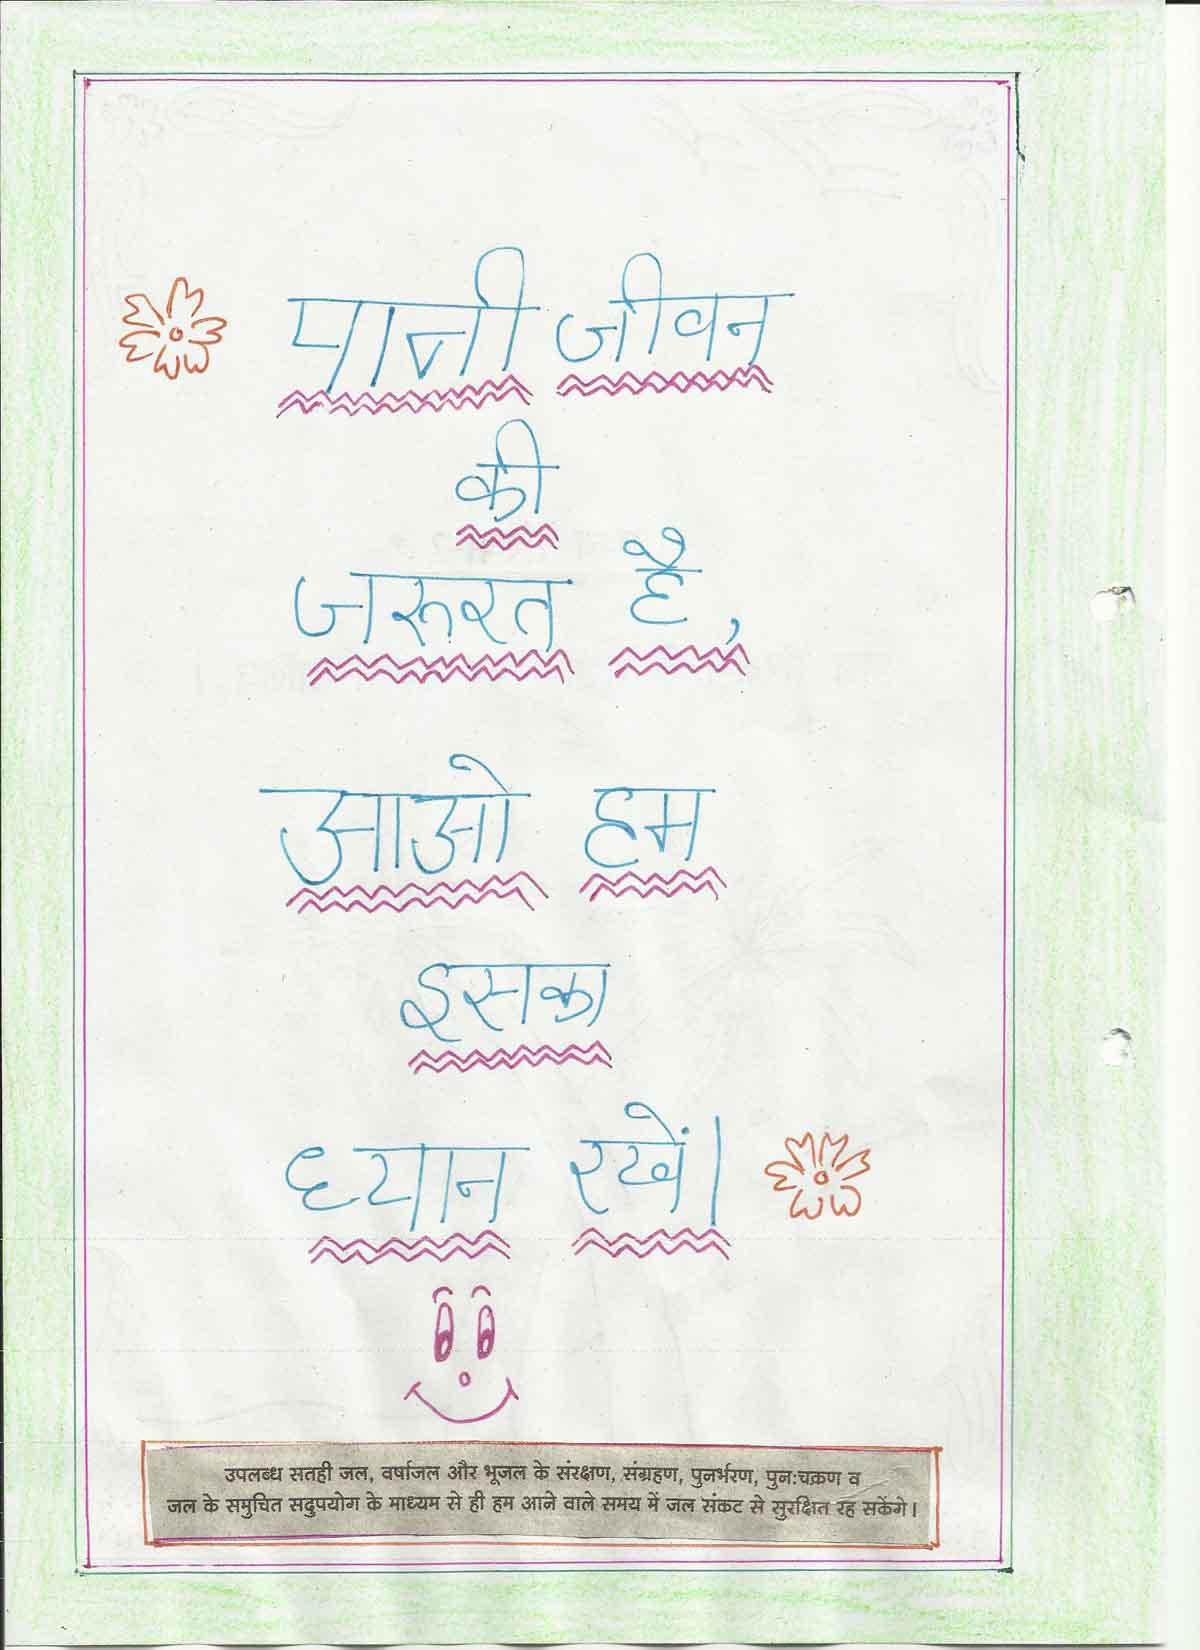 पानी जीवन
की
जरूरत है,
आओ हम
इसका
ध्यान रखें।
उपलब्ध सतही जल, वर्षाजल और भूजल के संरक्षण, संग्रहण, पुनर्भरण, पुन:चक्रण व
जल के समुचित सदुपयोग के माध्यम से ही हम आने वाले समय में जल संकट से सुरक्षित रह सकेंगे।